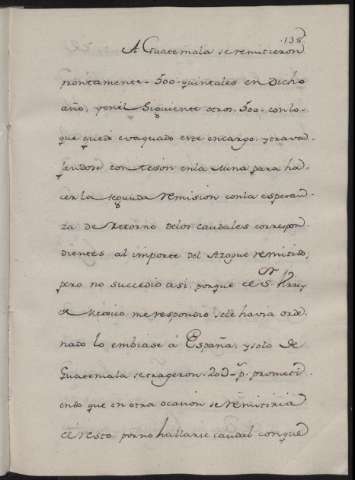 138
A Guatemala se remitieron
prontamente 500 quintales en dicho
año, y en el siguiente otros 500 con lo
que quedo evaquado este encargo, y trava-
jandose con teson en la Mina para ha-
cer la segunda remision con la esperan-
za de Retorno de los caudales correspon-
dientes al importe del Azogue remitido,
pero no succedio asi, porque el S.r Virrey
de Mexico me respondio, se le havia orde-
nado lo embiase á España, y solo de
Guatemala se trageron 20 U p.s prometi-
endo que en otra ocasion se remitiria
el resto por no hallarse caudal conque